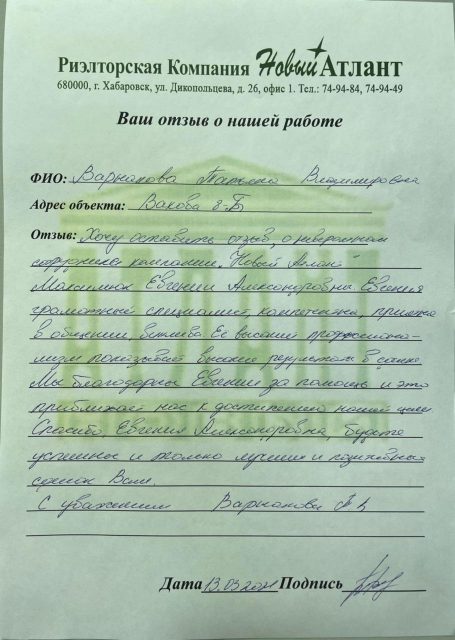 Риэлторская Компания Новый Атлант
680000, г. Хабаровск, ул. Дикопольцева, д. 26, офис 1. Тел.: 74-94-84, 74-94-49
Ваш отзыв о нашей работе
ФИО: Варнакова Татьяна Владимировна
Адрес объекта: 8-Б
Отзыв: Хочу оставить отзыв, о
сотруднике компании "Новый Атлант"
Максимюк Евгении Александровна. Евгения
грамотный специалист, приятна
в общении, вежлива. Ее высокий профессиона-
лизм показывает высокие результаты в
Мы благодарны Евгении за помощь и это
приближает нас к достижению нашей цели
Спасибо, Евгения Александровна, будьте
успешны и только лучших и позитивных
сделок Вам.
С уважением Варнакова Т В
Дата 13.03.2021 Подпись